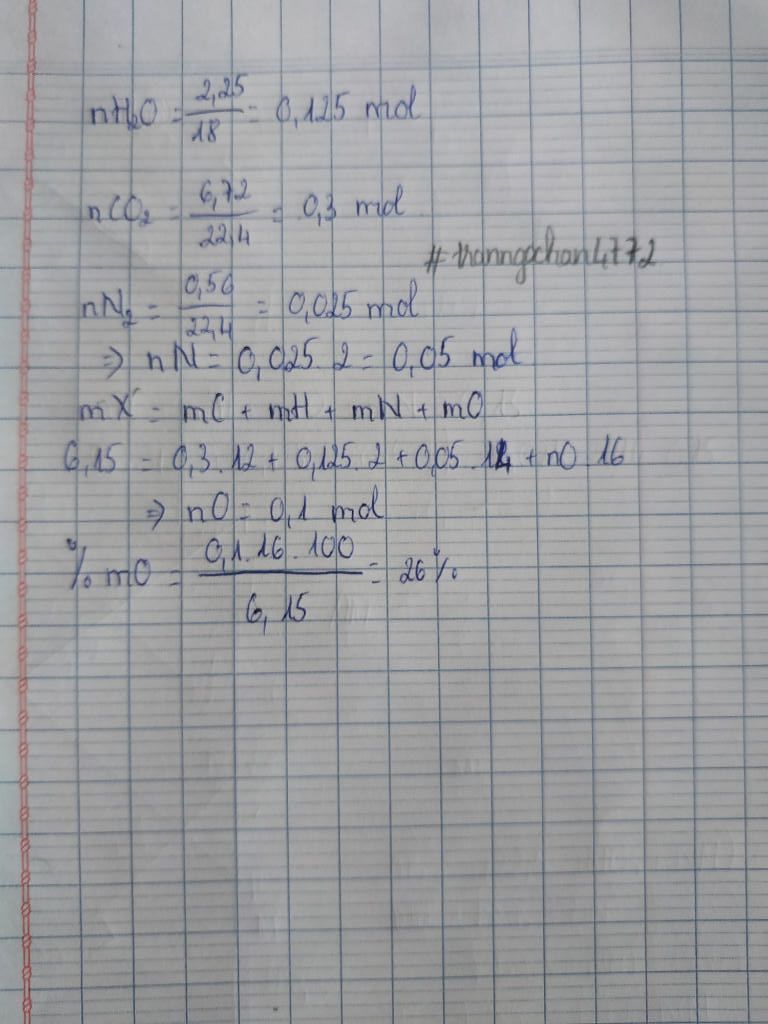 nH₂O = 2,25/18 = 0,125 mol
nCO₂ = 6,72/22,4 = 0,3 mol
nN₂ = 0,56/22,4 = 0,025 mol
⇒ nN = 0,025.2 = 0,05 mol
mX = mC + mH + mN + mO
6,15 = 0,3.12 + 0,125.2 + 0,05.14 + nO.16
⇒ nO = 0,1 mol
% mO = 0,1.16.100/6,15 = 26%